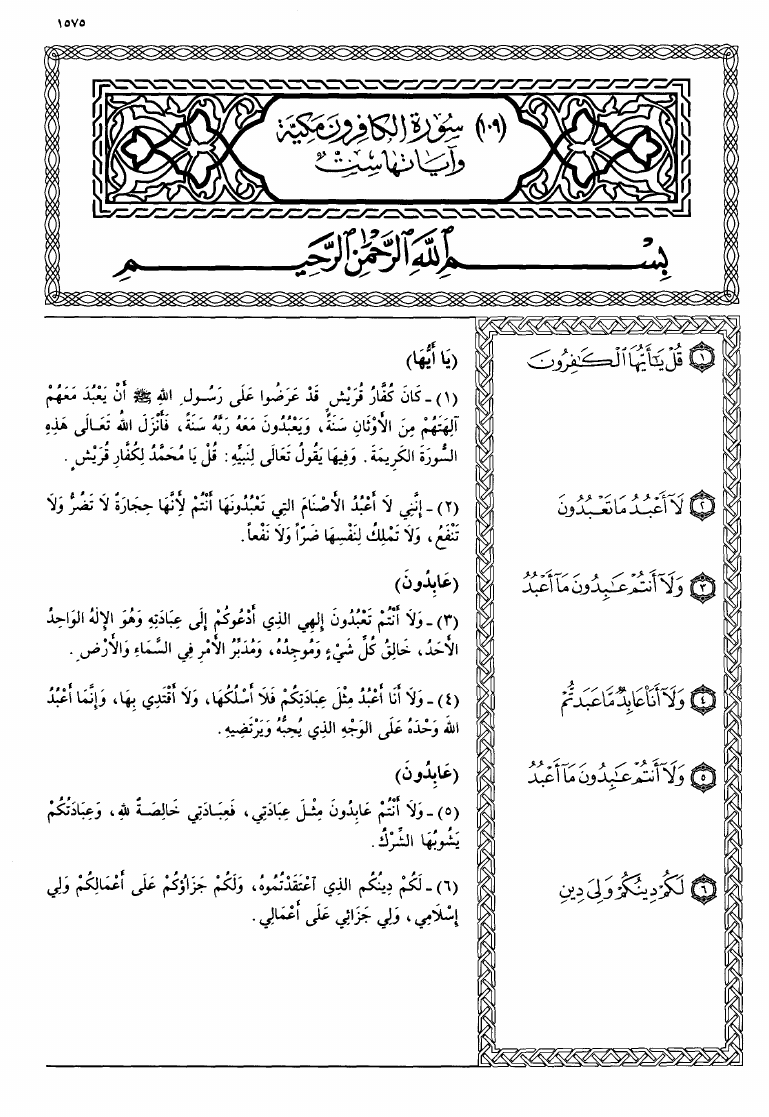 ١٥٧٥
(١٠٩) سُورَة الكافِرون مَكيَّة
وآيَاتها سِتٌّ
بِسْمِ ٱللَّهِ ٱلرَّحْمَٰنِ ٱلرَّحِيمِ
١ قُلْ يَٰٓأَيُّهَا ٱلْكَٰفِرُونَ
٢ لَآ أَعْبُدُ مَا تَعْبُدُونَ
٣ وَلَآ أَنتُمْ عَٰبِدُونَ مَآ أَعْبُدُ
٤ وَلَآ أَنَا۠ عَابِدٌ مَّا عَبَدتُّمْ
٥ وَلَآ أَنتُمْ عَٰبِدُونَ مَآ أَعْبُدُ
٦ لَكُمْ دِينُكُمْ وَلِيَ دِينِ
(يَا أَيُّهَا)
(١) - كَانَ كُفَّارُ قُرَيْشٍ قَدْ عَرَضُوا عَلَى رَسُولِ اللهِ ﷺ أَنْ يَعْبُدَ مَعَهُمْ
آلِهَتَهُمْ مِنَ الأَوْثَانِ سَنَةً، وَيَعْبُدُونَ مَعَهُ رَبَّهُ سَنَةً، فَأَنْزَلَ اللهُ تَعَالَى هَذِهِ
السُّورَةَ الكَرِيمَةَ. وَفِيهَا يَقُولُ تَعَالَى لِنَبِيِّهِ: قُلْ يَا مُحَمَّدُ لِكُفَّارِ قُرَيْشٍ.
(٢) - إِنَّنِي لَا أَعْبُدُ الأَصْنَامَ التِي تَعْبُدُونَهَا أَنْتُمْ لأَنَّهَا حِجَارَةٌ لَا تَضُرُّ وَلَا
تَنْفَعُ، وَلَا تَمْلِكُ لِنَفْسِهَا ضَرّاً وَلَا نَفْعاً.
(عَابِدُونَ)
(٣) - وَلَا أَنْتُمْ تَعْبُدُونَ إِلهِي الذِي أَدْعُوكُمْ إِلَى عِبَادَتِهِ وَهُوَ الإِلهُ الوَاحِدُ
الأَحَدُ، خَالِقُ كُلِّ شَيْءٍ وَمُوجِدُهُ، وَمُدَبِّرُ الأَمْرِ فِي السَّمَاءِ وَالأَرْضِ.
(٤) - وَلَا أَنَا أَعْبُدُ مِثْلَ عِبَادَتِكُمْ فَلَا أَسْلُكُهَا، وَلَا أَقْتَدِي بِهَا، وَإِنَّمَا أَعْبُدُ
اللهَ وَحْدَهُ عَلَى الوَجْهِ الذِي يُحِبُّهُ وَيَرْتَضِيهِ.
(عَابِدُونَ)
(٥) - وَلَا أَنْتُمْ عَابِدُونَ مِثْلَ عِبَادَتِي، فَعِبَادَتِي خَالِصَةٌ للهِ، وَعِبَادَتُكُمْ
يَشُوبُهَا الشِّرْكُ.
(٦) - لَكُمْ دِينُكُم الذِي ٱعْتَقَدْتُمُوهُ، وَلَكُمْ جَزَاؤُكُمْ عَلَى أَعْمَالِكُمْ وَلِي
إِسْلَامِي، وَلِي جَزَائِي عَلَى أَعْمَالِي.